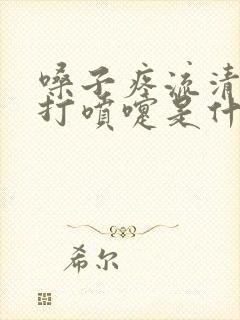 嗓子疼流清
打喷嚏是什
希尔